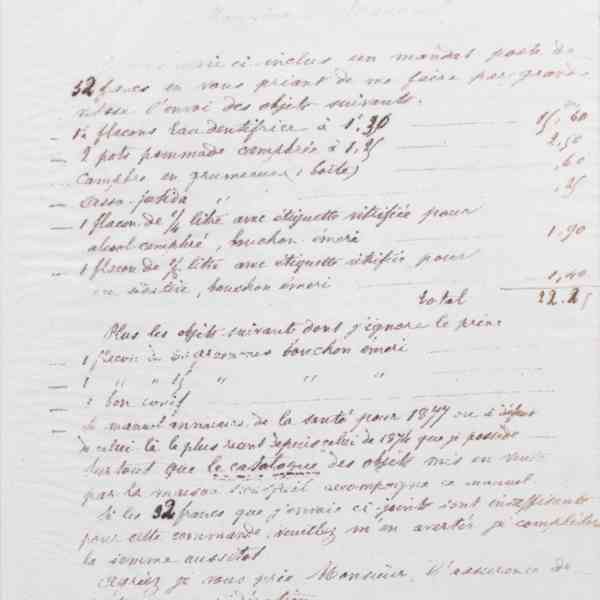 ci inclus un mandat poste de
32 francs en vous priant de me faire par grande
vitesse l'envoi des objets suivants.
12 flacons Eau dentifrice à 1f.30 15,60
2 pots pommade camphrée à 1.25 2,50
Camphre en grumeaux, 1 boîte ,60
" ,25
1 flacon de 1/4 litre avec étiquette vitrifiée pour
alcool camphré, bouchon émeri 1,90
1 flacon de 1/2 litre avec étiquette vitrifiée pour
bouchon émeri 1,40
Total 22.25
Plus les objets suivants dont j'ignore le prix
1 flacon grammes bouchon émeri
1 " " 15 " " "
1 bon
Le manuel annuaire de la santé pour 1877 ou à défaut
de celui là le plus récent depuis celui de 1874 que je possède
surtout que le catalogue des objets mis en vente
par la maison accompagne ce manuel
Si les 32 francs que j'envoie ci-joints sont insuffisants
pour cette commande, veuillez m'en avertir je compléterai
la somme aussitôt
Agréez je vous prie Monsieur, l'assurance de